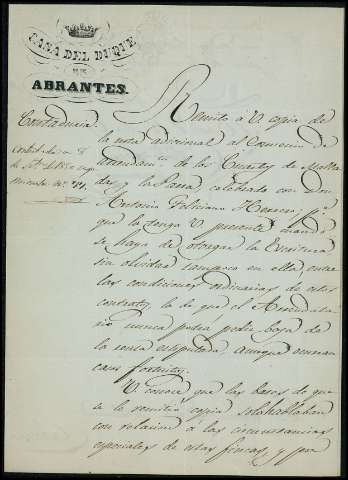 CASA DEL DUQUE
DE
ABRANTES.
Contaduria.
Remito á V copia de
la nota adicional al Convenio de
arrendam.to de las
y la Parra, celebrado con Don
Antonio Feliciano p.a
que la tenga V presente cuando
se haya de otorgar la Escritura
sin olvidar tampoco en ella, entre
las condiciones ordinarias de estos
contratos, la de que el Arrendata
rio nunca podra pedir baja de
la renta estipulada aunque
casos fortuitos.
V conoce que las bases de que
se le remitio copia solo hablaban
con relacion á las circunstancias
especiales de estas fincas, y por